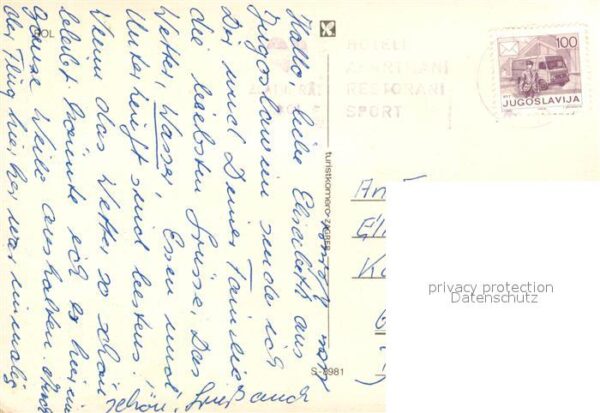 BOL
Hallo liebe Elisabeth aus
Jugoslawien sende ich
Dir und Deiner Familie
die herzlichsten Grüsse. Das
Wetter, Wasser, Essen und
Unterkunft sind bestens!
Wenn das Wetter so schön
bleibt könnte ich es hier eine
ganze Weile aushalten. Auch
der Flug hierher war einmalig
schön! Gruß auch
HOTELI
APARTMANI
RESTORANI
SPORT
100
JUGOSLAVIJA
turistkomerc-ZAGREB
S-8981
An
privacy protection
Datenschutz